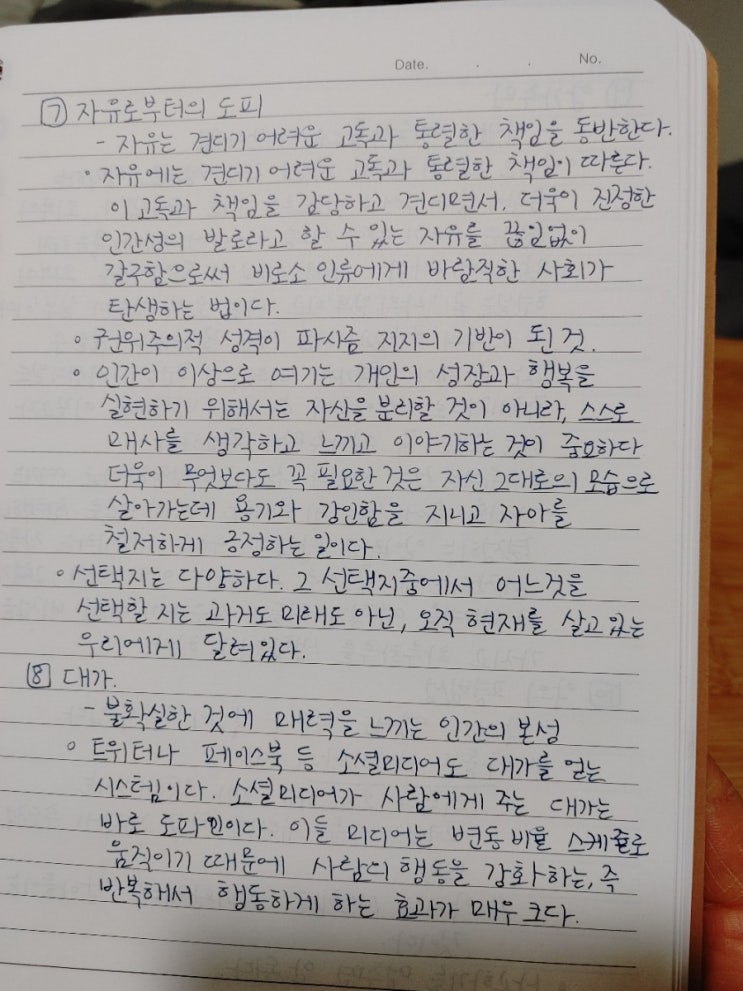 Date. . . No.
7 자유로부터의 도피
- 자유는 견디기 어려운 고독과 통렬한 책임을 동반한다.
• 자유에는 견디기 어려운 고독과 통렬한 책임이 따른다.
이 고독과 책임을 감당하고 견디면서, 더욱이 진정한
인간성의 발로라고 할 수 있는 자유를 끊임없이
갈구함으로써 비로소 인류에게 바람직한 사회가
탄생하는 법이다.
• 권위주의적 성격이 파시즘 지지의 기반이 된 것.
• 인간이 이상으로 여기는 개인의 성장과 행복을
실현하기 위해서는 자신을 분리할 것이 아니라, 스스로
매사를 생각하고 느끼고 이야기하는 것이 중요하다
더욱이 무엇보다도 꼭 필요한 것은 자신 그대로의 모습으로
살아가는데 용기와 강인함을 지니고 자아를
철저하게 긍정하는 일이다.
• 선택지는 다양하다. 그 선택지중에서 어느것을
선택할 지는 과거도 미래도 아닌, 오직 현재를 살고 있는
우리에게 달려있다.
8 대가.
- 불확실한 것에 매력을 느끼는 인간의 본성
• 트위터나 페이스북 등 소셜미디어도 대가를 얻는
시스템이다. 소셜미디어가 사람에게 주는 대가는
바로 도파민이다. 이들 미디어는 변동 비율 스케줄로
움직이기 때문에 사람의 행동을 강화하는, 즉
반복해서 행동하게 하는 효과가 매우 크다.